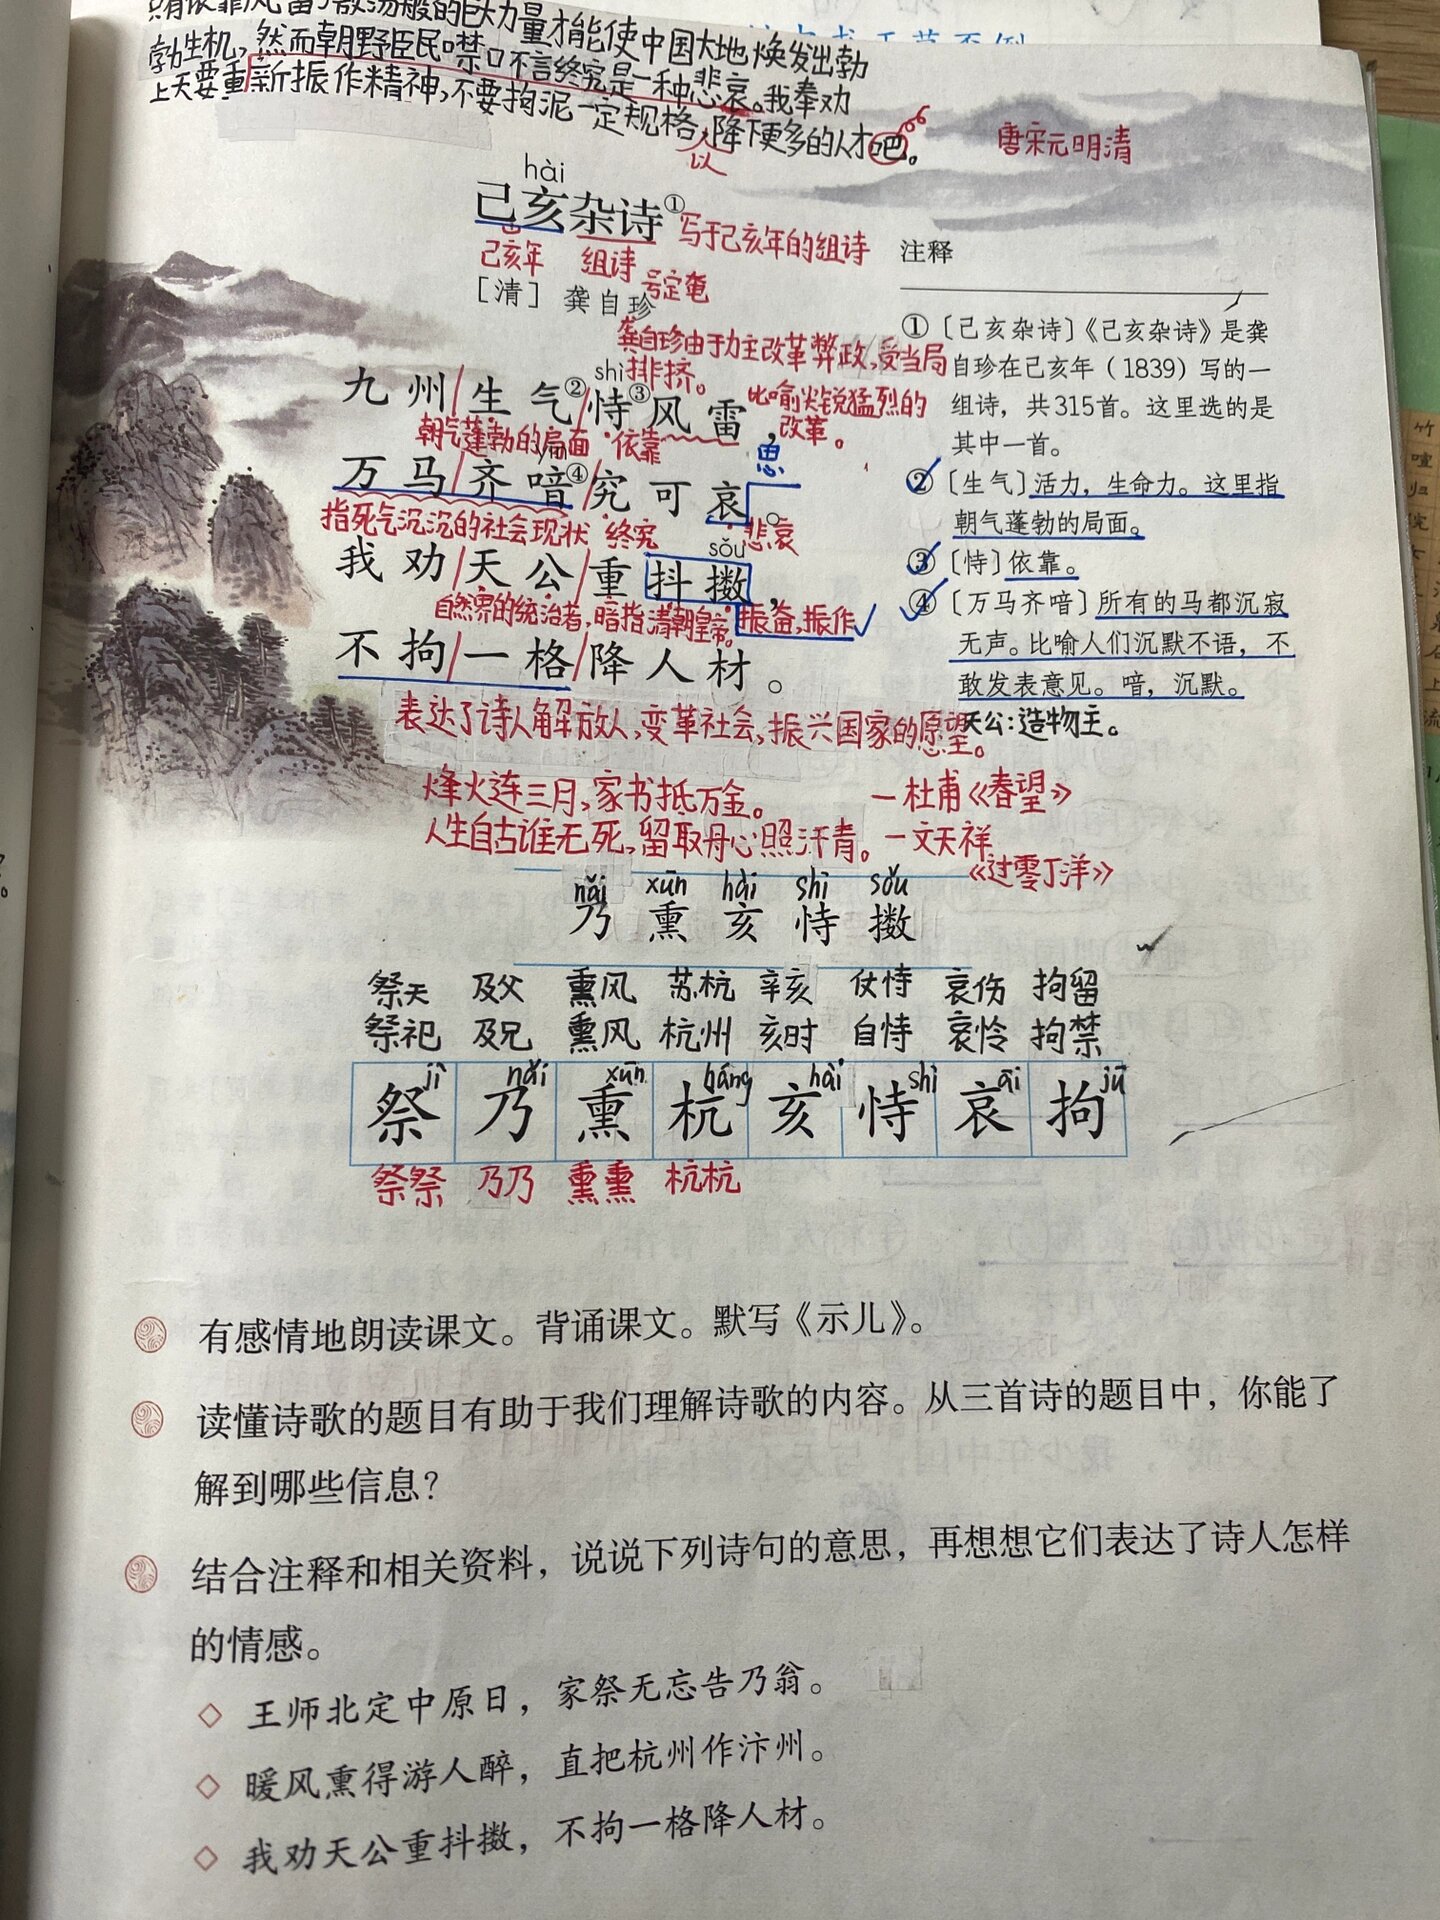 只有依靠风雷
般的巨大力量才能使中国大地焕发出勃
勃生机,然而朝野臣民噤口不言终究是一种悲哀。我奉劝
上天要重新振作精神,不要拘泥一定规格,降下更多的人才吧。
以
唐宋元明清
hài
己亥杂诗①
写于己亥年的组诗
己亥年 组诗
号定盦
[清] 龚自珍
龚自珍由于力主改革弊政,受当局
排挤。
shì
九州/生气②/恃③风雷,
比喻尖锐猛烈的
改革。
朝气蓬勃的局面 依靠
思
万马/齐喑④/究可哀。
指死气沉沉的社会现状 终究 悲哀
sǒu
我劝/天公/重抖擞,
自然界的统治者,暗指清朝皇帝。 振奋,振作
不拘/一格/降人材。
表达了诗人解放人,变革社会,振兴国家的愿望。
注释
①[己亥杂诗]《己亥杂诗》是龚
自珍在己亥年(1839)写的一
组诗,共315首。这里选的是
其中一首。
②[生气]活力,生命力。这里指
朝气蓬勃的局面。
③[恃]依靠。
④[万马齐喑]所有的马都沉寂
无声。比喻人们沉默不语,不
敢发表意见。喑,沉默。
天公:造物主。
烽火连三月,家书抵万金。 —杜甫《春望》
人生自古谁无死,留取丹心照汗青。—文天祥
《过零丁洋》
nǎi xūn hài shì sǒu
乃 熏 亥 恃 擞
祭天 乃父 熏风 苏杭 辛亥 仗恃 哀伤 拘留
祭祀 乃兄 熏风 杭州 亥时 自恃 哀怜 拘禁
jì nǎi xūn háng hài shì āi jū
祭 乃 熏 杭 亥 恃 哀 拘
祭祭 乃乃 熏熏 杭杭
有感情地朗读课文。背诵课文。默写《示儿》。
读懂诗歌的题目有助于我们理解诗歌的内容。从三首诗的题目中,你能了
解到哪些信息?
结合注释和相关资料,说说下列诗句的意思,再想想它们表达了诗人怎样
的情感。
◇ 王师北定中原日,家祭无忘告乃翁。
◇ 暖风熏得游人醉,直把杭州作汴州。
◇ 我劝天公重抖擞,不拘一格降人材。